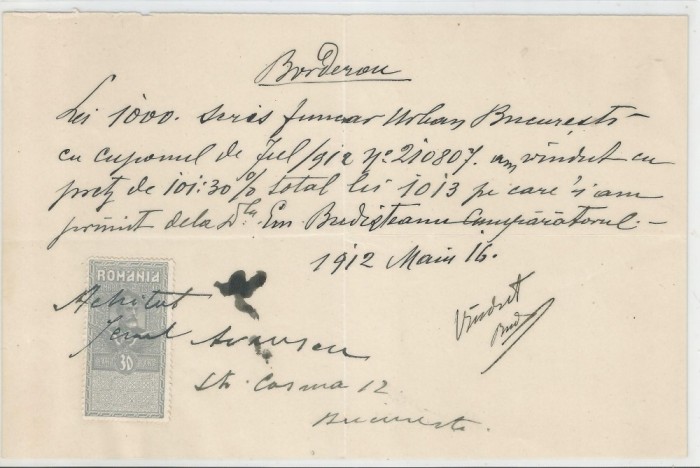 Borderou
Lei 1000. scris funciar Urban București
cu cuponul de Jul/912 No. 210807. am vîndut cu
preț de 101:30% total lei 1013 pe care i am
primit dela Dla Em Bredișteanu Cumpărătorul.—
1912 Maiu 16.
ROMANIA
Achitat
30
Vîndut
Str. Cosma 12
București.